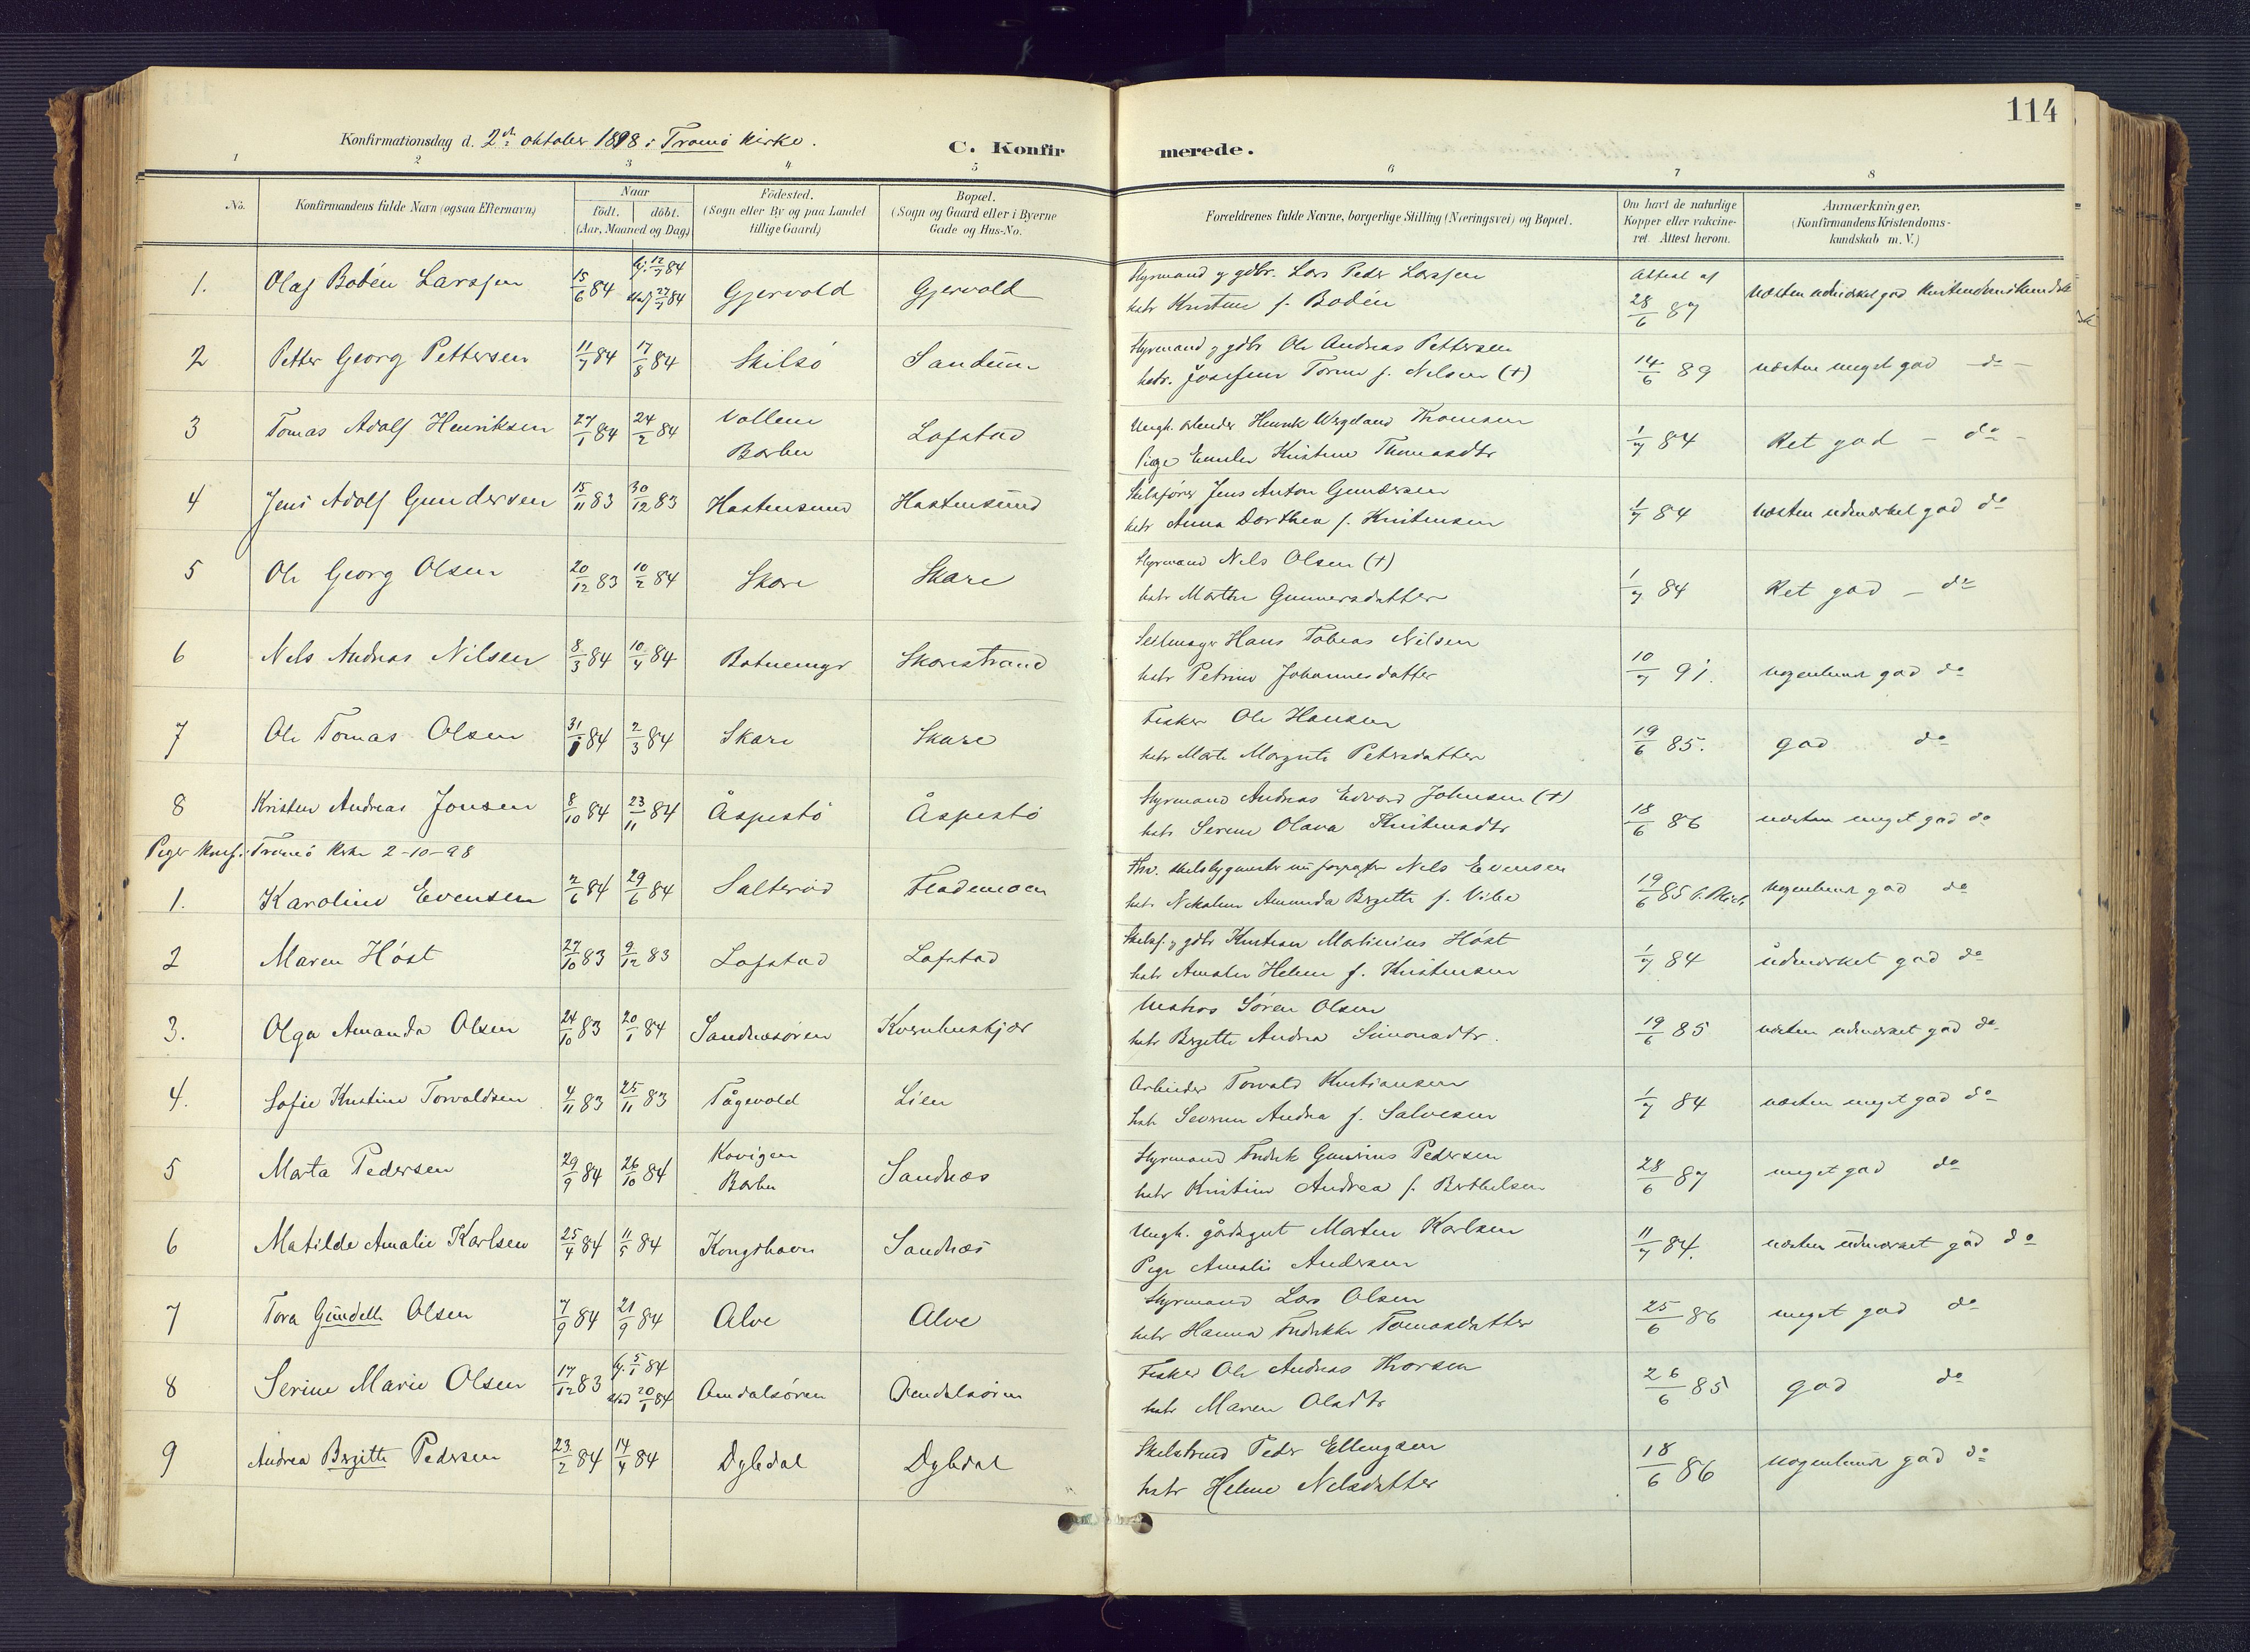 114
Konfirmationsdag d. 2den oktober 1898 i Tromö kirke.
C. Konfirmerede.
1 2 3 4 5 6 7 8
No. Konfirmandens fulde Navn (ogsaa Efternavn) Naar födt. döbt. (Aar, Maaned og Dag) Födested. (Sogn eller By og paa Landet tillige Gaard) Bopæl. (Sogn og Gaard eller i Byerne Gade og Hus-No. Forældrenes fulde Navne, borgerlige Stilling (Næringsvei) og Bopæl. Om havt de naturlige Kopper eller vakcineret. Attest herom. Anmærkninger. (Konfirmandens Kristendomskundskab m. V.)
1. Olaf Bodén Larssen 15/6 84 hj. 12/7 84 stadf. 27/7 84 Gjervold Gjervold Styrmand og gdbr. Lars Peder Larssen
hstr Kristine f. Bodén Attest af 28/6 87 Næsten udmerket god kristendomskundskab
2 Petter Georg Pettersen 11/7 84 17/8 84 Skilsö Sandum Styrmand og gdbr Ole Andreas Pettersen
hstr. Josefine Torine f. Nilsen (+) 14/6 89 næsten meget god - do -
3 Tomas Adolf Henriksen 27/1 84 24/2 84 Vollene Barbu Lofstad Ungk. arbeider Henrik Wergeland Thomsen
Pige Emilie Kristine Thomasdtr 1/7 84 Ret god - do -
4 Jens Adolf Gundersen 15/11 83 30/12 83 Hastensund Hastensund Skibsfører Jens Anton Gundersen
hstr Anna Dorthea f. Kristensen 1/7 84 næsten udmerket god do
5 Ole Georg Olsen 20/12 83 10/2 84 Skare Skare Styrmand Nils Olsen (+)
hstr Marthe Gunnersdatter 1/7 84 Ret god - do
6 Nils Andreas Nilsen 8/3 84 10/4 84 Botnemyr Skarestrand Seilmager Hans Tobias Nilsen
hstr Petrine Johannesdatter 10/7 91. nogenlunde god do
7 Ole Tomas Olsen 31/1 84 2/3 84 Skare Skare Fisker Ole Hansen
hstr Marte Margrete Petersdatter 19/6 85. god do
8 Kristen Andreas Jonsen 8/10 84 23/11 84 Åspestö Åspestö Styrmand Andreas Edvard Johnsen (+)
hstr Serine Olava Kristensdtr 18/6 86 næsten meget god do
Piger konf. i Tromö kirke 2-10-98
1. Karoline Evensen 2/6 84 29/6 84 Salteröd Flademoen Fhv. skibsbygmester nu forpagter Nils Evensen
hstr Nikoline Amunda Birgitte f. Vibe 19/6 85 nogenlunde god do
2 Maren Höst 27/10 83 9/12 83 Lofstad Lofstad Skibsf. og gdbr Kristian Martinius Höst
hstr Amalie Helene f. Kristensen 1/7 84 udmerket god do
3. Olga Amanda Olsen 24/10 83 20/1 84 Sandnæsören Kvernhuskjær Matros Sören Olsen
hstr Birgitte Andrea Simonsdtr. 19/6 85 næsten udmerket god do
4. Sofie Kristine Torvaldsen 4/11 83 25/11 83 Fågevold Lien Arbeider Torvald Kristiansen
hstr Severine Andrea f. Salvesen 1/7 84 næsten meget god do
5 Marta Pedersen 29/9 84 26/10 84 Kovigen Barbu Sandnæs Styrmand Fredrik Gunerius Pedersen
hstr Kristine Andrea f. Berthelsen 28/6 87 meget god do
6 Matilde Amalie Karlsen 25/4 84 11/5 84 Kongshavn Sandnæs Ungk. gårdsgut Martin Karlsen
Pige Amalie Andersen 11/7 84. næsten udmerket god do
7 Tora Gundelle Olsen 7/9 84 21/9 84 Alve Alve Styrmand Lars Olsen
hstr Hanna Fredrikke Tomasdatter 25/6 86 meget god do
8 Serine Marie Olsen 17/12 83 hj. 5/1 84 stad 20/1 84 Omdalsören Omdalsören Fisker Ole Andreas Thorsen
hstr Maren Olsdtr 26/6 85 god do
9 Andrea Birgitte Pedersen 23/2 84 14/4 84 Dybdal Dybdal Skibstømd Peder Ellingsen
hstr Helene Nilsdatter 18/6 86 nogenlunde god do